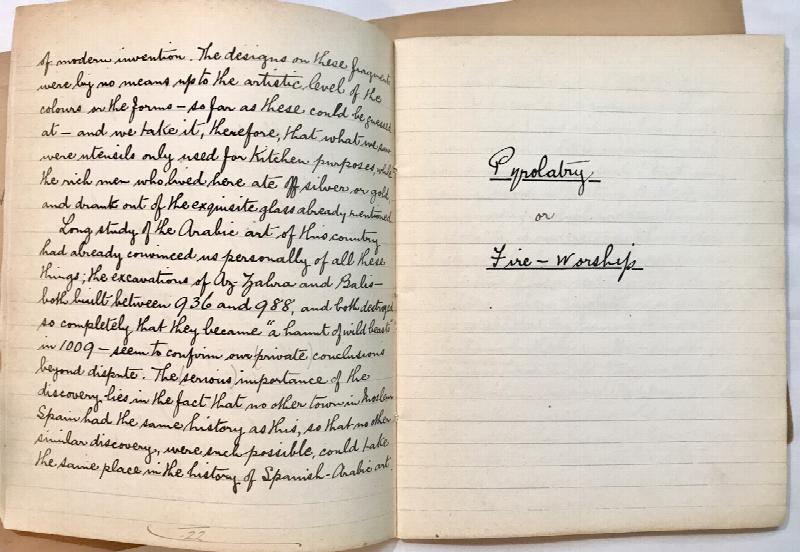 of modern invention. The designs on these fragments
were by no means up to the artistic level of the
colours or the forms – so far as these could be guessed
at – and we take it, therefore, that what we saw
were utensils only used for kitchen purposes, while
the rich men who lived here ate off silver or gold,
and drank out of the exquisite glass already mentioned.
Long study of the Arabic art of this country
had already convinced us personally of all these
things; the excavations of Az-Zahra and Balis –
both built between 936 and 988, and both destroyed
so completely that they became "a haunt of wild beasts"
in 1009 – seem to confirm our private conclusions
beyond dispute. The serious importance of the
discovery lies in the fact that no other town in Moslem
Spain had the same history as this, so that no other
similar discovery, were such possible, could take
the same place in the history of Spanish-Arabic art.
22
Pyrolatry
or
Fire – Worship